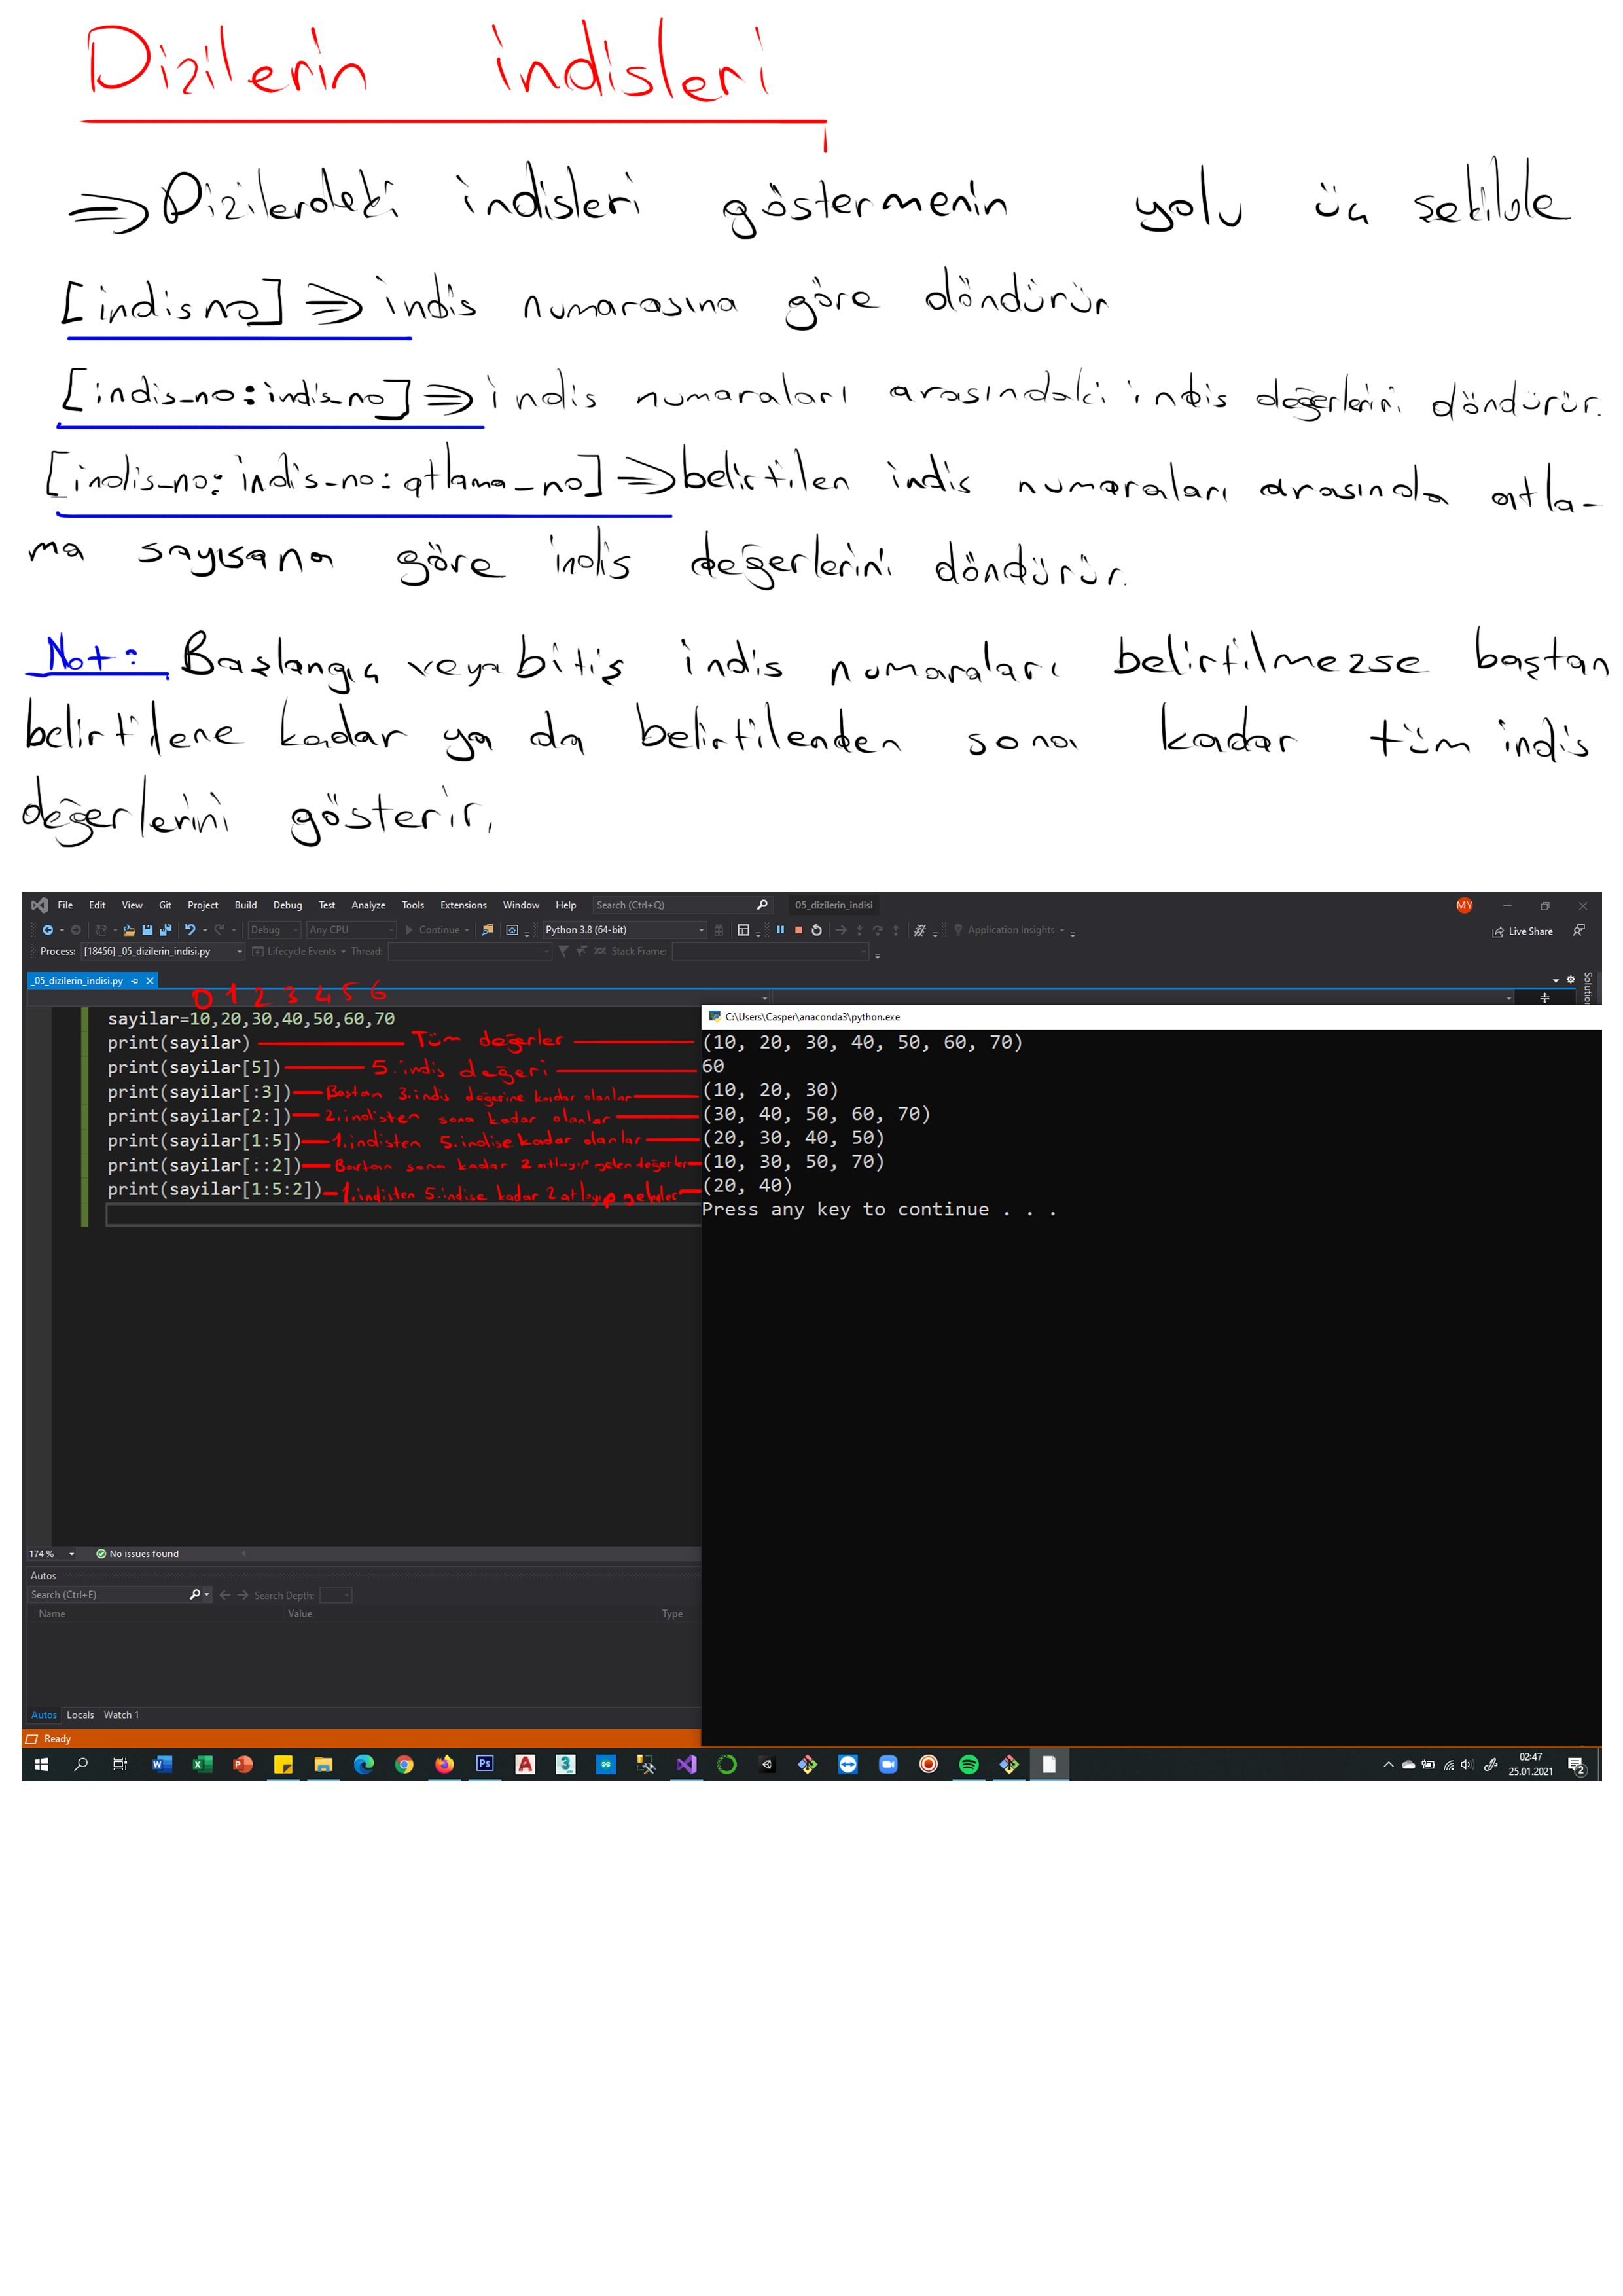 Dizilerin indisleri
⇒ Dizilerdeki indisleri göstermenin yolu üç şekilde
[indisno] ⇒ indis numarasına göre döndürür
[indis_no:indis_no] ⇒ indis numaraları arasındaki indis değerlerini döndürür.
[indis_no:indis_no:atlama_no] ⇒ belirtilen indis numaraları arasında atla-
ma sayısana göre indis değerlerini döndürür.
Not: Başlangıç veya bitiş indis numaraları belirtilmezse baştan
belirtilene kadar ya da belirtilenden sona kadar tüm indis
değerlerini gösterir.
File Edit View Git Project Build Debug Test Analyze Tools Extensions Window Help Search (Ctrl+Q) 05_dizilerin_indisi MY
Debug Any CPU Continue Python 3.8 (64-bit) Application Insights Live Share
Process: [18456] _05_dizilerin_indisi.py Lifecycle Events Thread: Stack Frame:
_05_dizilerin_indisi.py
Solutio
0 1 2 3 4 5 6
C:\Users\Casper\anaconda3\python.exe
sayilar=10,20,30,40,50,60,70
print(sayilar) Tüm değerler (10, 20, 30, 40, 50, 60, 70)
print(sayilar[5]) 5.indis değeri 60
print(sayilar[:3]) Baştan 3.indis değerine kadar olanlar (10, 20, 30)
print(sayilar[2:]) 2.indisten sona kadar olanlar (30, 40, 50, 60, 70)
print(sayilar[1:5]) 1.indisten 5.indise kadar olanlar (20, 30, 40, 50)
print(sayilar[::2]) Baştan sona kadar 2 atlayıp gelen değerler (10, 30, 50, 70)
print(sayilar[1:5:2]) 1.indisten 5.indise kadar 2 atlayıp (20, 40)
Press any key to continue . . .
174 % No issues found
Autos
Search (Ctrl+E) Search Depth:
Name Value Type
Autos Locals Watch 1
Ready
02:47
25.01.2021
2